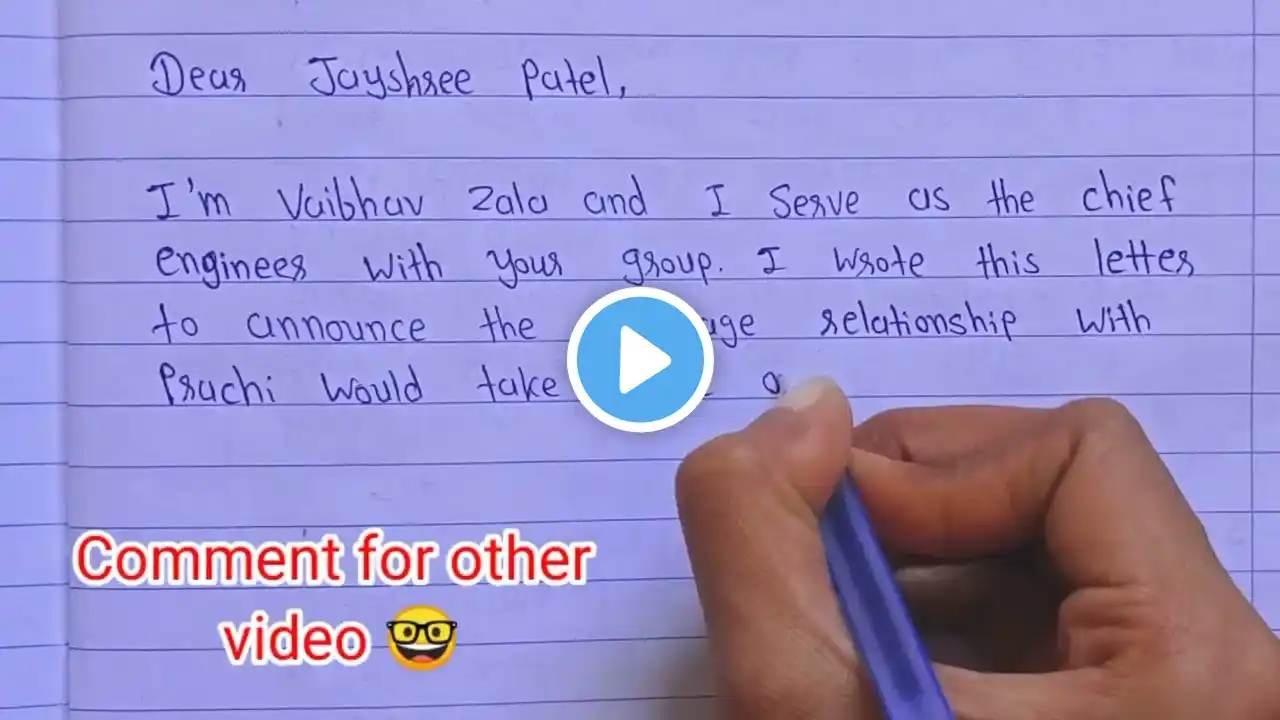 Dear Jayshree Patel,
I'm Vaibhav Zala and I Serve as the chief
engineer with your group. I wrote this letter
to announce the relationship with
Prachi would take
Comment for other
video 🤓